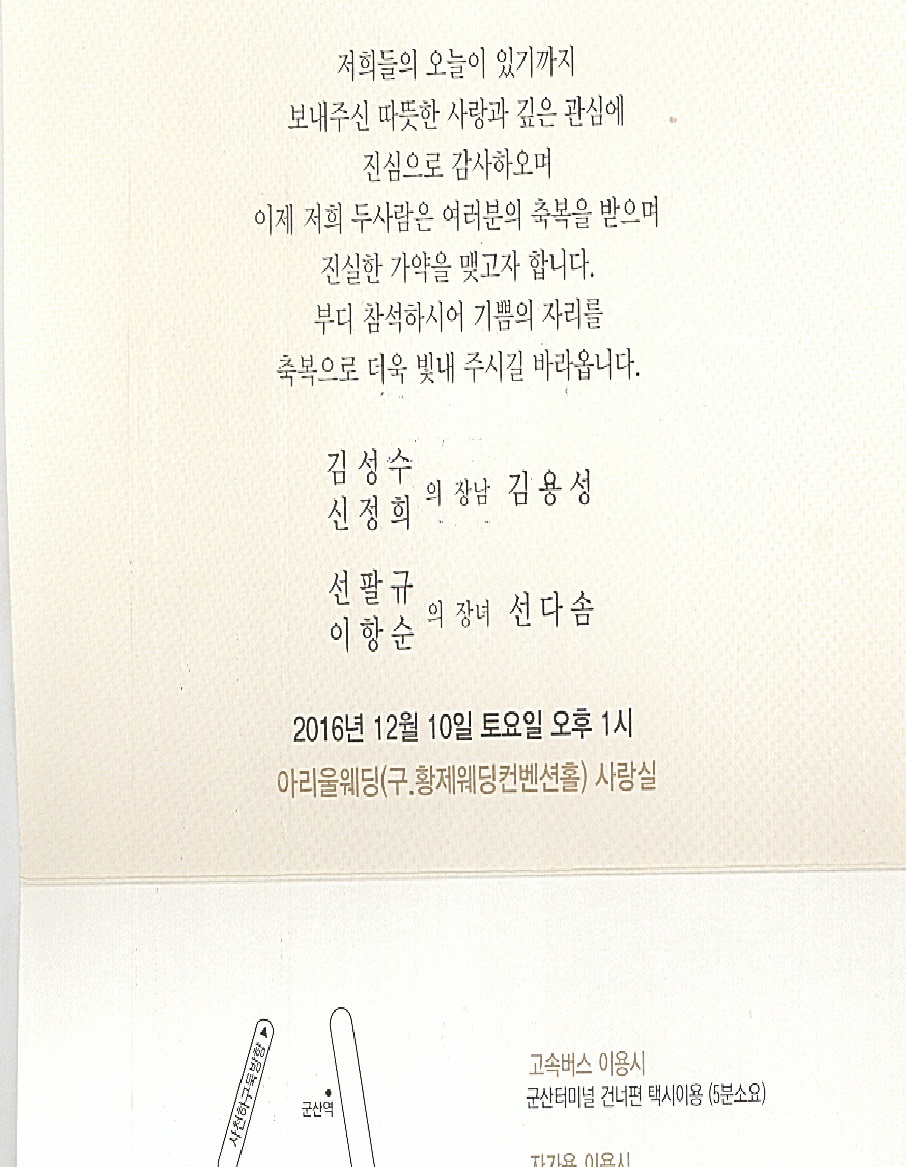 저희들의 오늘이 있기까지
보내주신 따뜻한 사랑과 깊은 관심에
진심으로 감사하오며
이제 저희 두사람은 여러분의 축복을 받으며
진실한 가약을 맺고자 합니다.
부디 참석하시어 기쁨의 자리를
축복으로 더욱 빛내 주시길 바라옵니다.
김성수
신정희
의 장남 김용성
선팔규
이항순
의 장녀 선다솜
2016년 12월 10일 토요일 오후 1시
아리울웨딩(구.황제웨딩컨벤션홀) 사랑실
군산역
고속버스 이용시
군산터미널 건너편 택시이용 (5분소요)
자가용 이용시